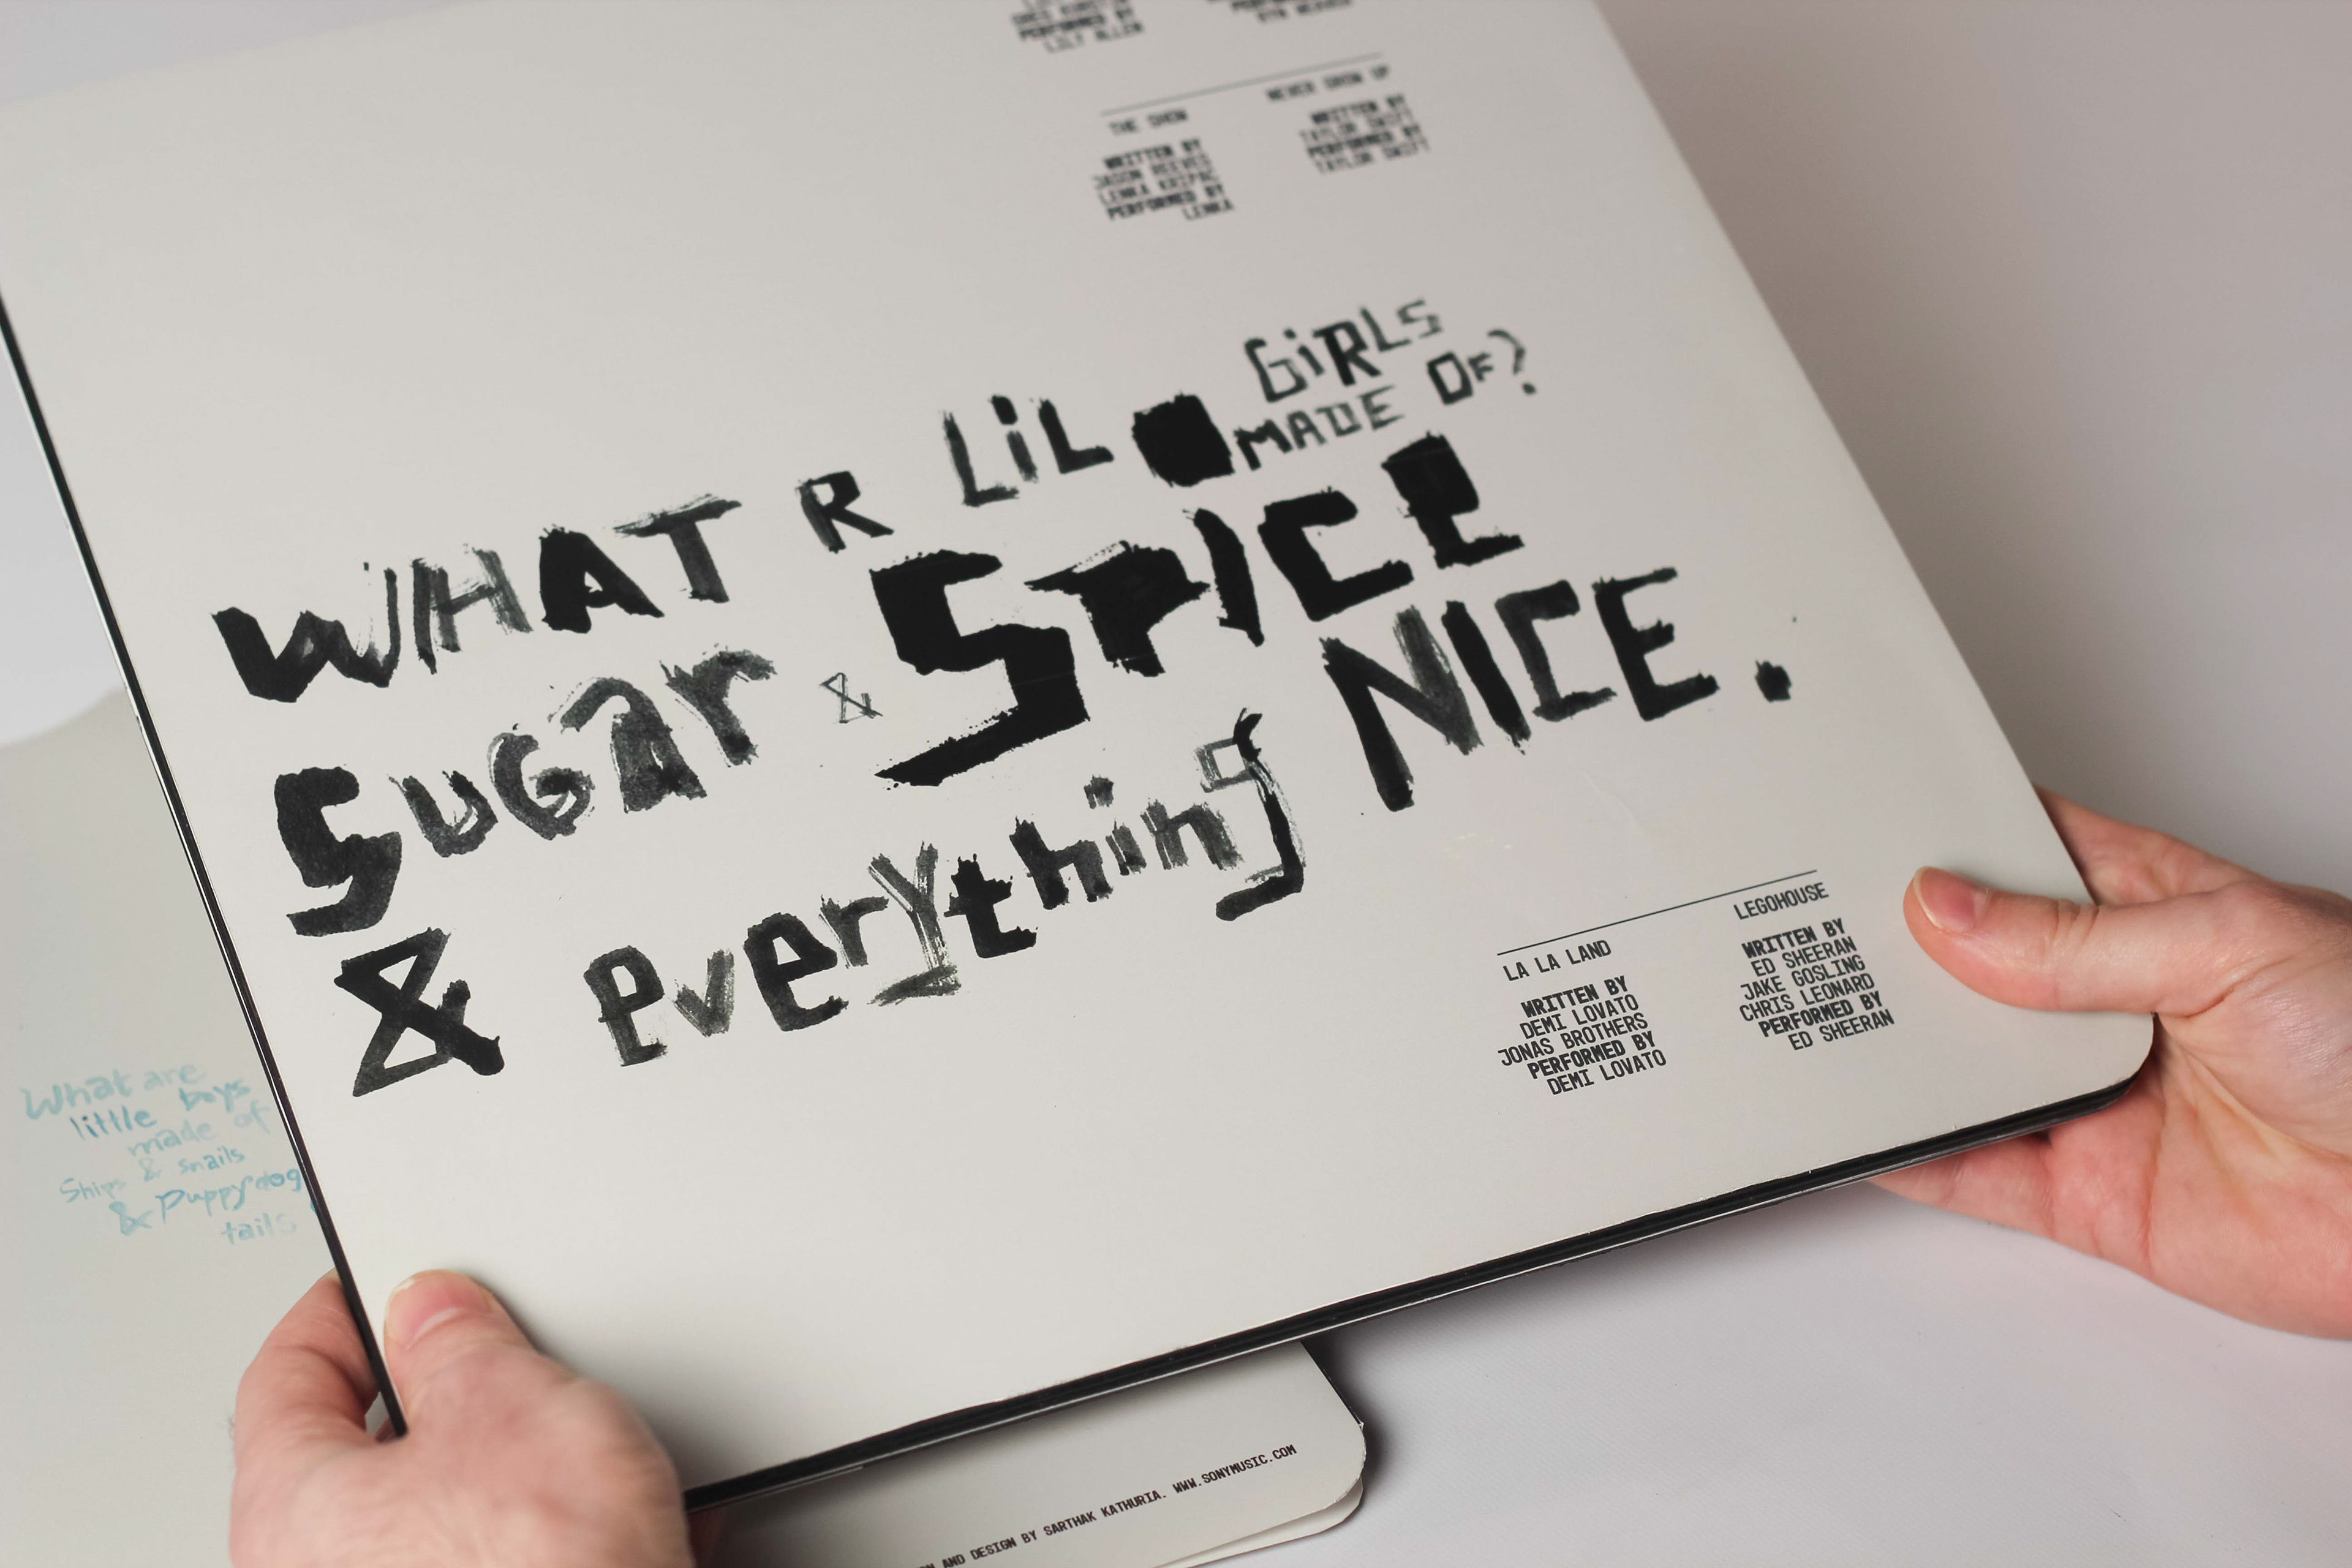 PERFORMED BY
LILY ALLEN
PERFORMED BY
THE SHOW
WRITTEN BY
JASON REEVES
LENKA KRIPAC
PERFORMED BY
LENKA
NEVER GROW UP
WRITTEN BY
TAYLOR SWIFT
PERFORMED BY
TAYLOR SWIFT
WHAT R LiL GiRLS
MADE OF?
SUGar & SPICE
& everything NICE.
LA LA LAND
WRITTEN BY
DEMI LOVATO
JONAS BROTHERS
PERFORMED BY
DEMI LOVATO
LEGOHOUSE
WRITTEN BY
ED SHEERAN
JAKE GOSLING
CHRIS LEONARD
PERFORMED BY
ED SHEERAN
What are
little boys
made of
& snails
& puppydog
tails
AND DESIGN BY SARTHAK KATHURIA. WWW.SONYMUSIC.COM